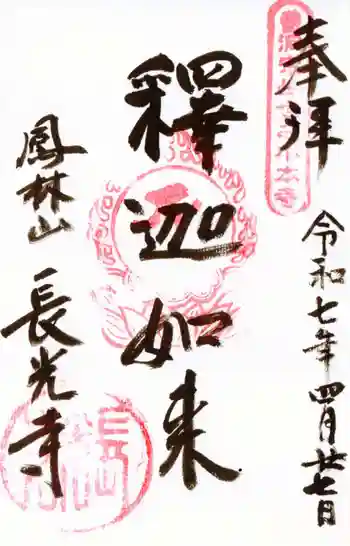 奉拝
令和七年四月廿七日
釋迦如来
鳳林山
長光寺